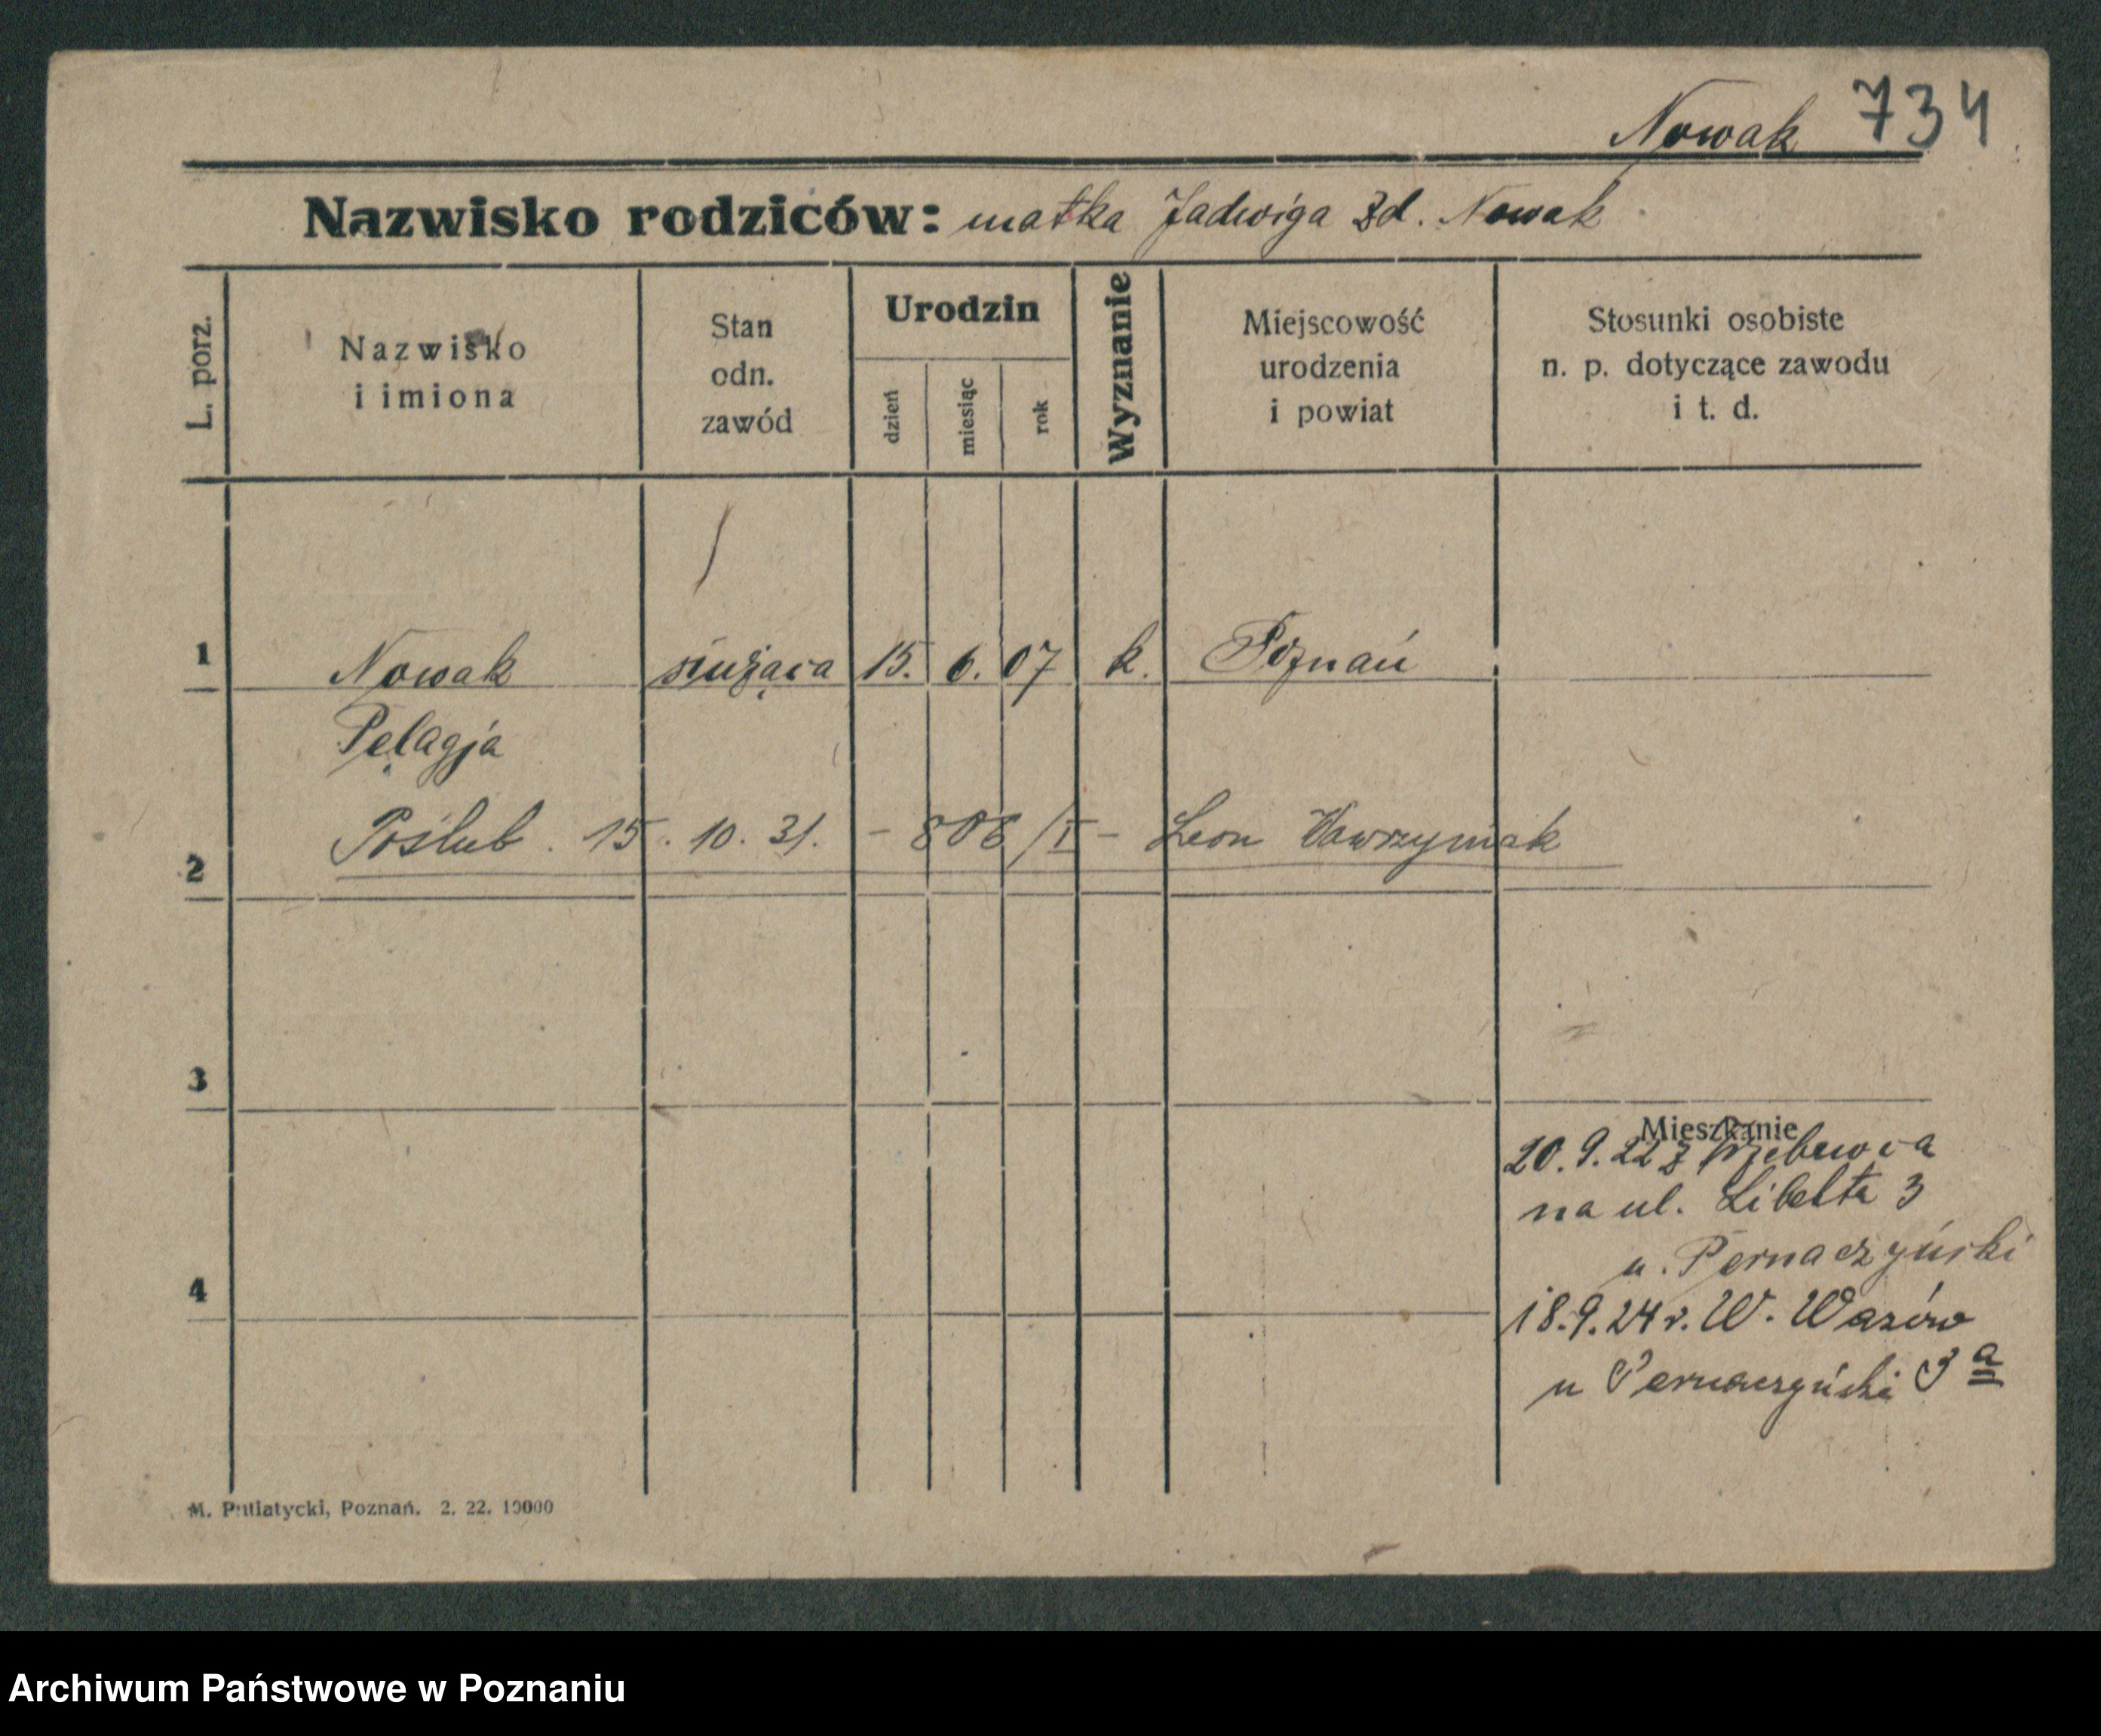 Nowak 734
Nazwisko rodziców: matka Jadwiga zd. Nowak
L. porz.
Nazwisko
i imiona
Stan
odn.
zawód
Urodzin
dzień
miesiąc
rok
Wyznanie
Miejscowość
urodzenia
i powiat
Stosunki osobiste
n. p. dotyczące zawodu
i t. d.
1 Nowak służąca 15. 6. 07 k. Poznań
Pelagja
2 Poślub. 15. 10. 31. - 808/I - Leon Wawrzyniak
3
Mieszkanie
20. 9. 22 z
na ul. Libelta 3
u. Pernaczyński
4
18. 9. 24 r. W. Wazów
u Pernaczyński 3 a
M. Putiatycki, Poznań. 2. 22. 10000
Archiwum Państwowe w Poznaniu